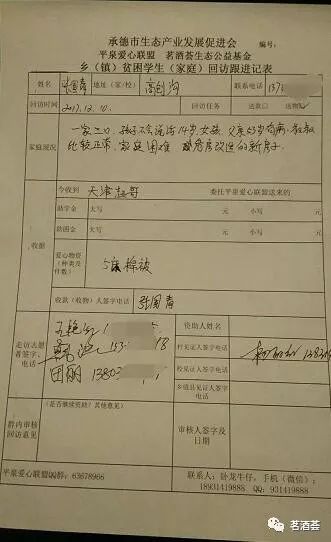 承德市生态产业发展促进会
编号:
平泉爱心联盟 茗酒荟生态公益基金
乡(镇)贫困学生(家庭)回访跟进记表
姓名 张国青 地址(家/校) 联系电话
回访时间 2017.12.10. 回访任务 送款□ 送物
家庭现况
一家三口,孩子不会说话14岁女孩,父亲
比较正常,家庭困难 危房改造的新房子.
今收到 天津 哥 委托平泉爱心联盟送来的
助学金 大写 元 小写 元
助困金 大写 元 小写 元
收据
爱心物资(种类及件数)
5床棉被
收款(收物)人签字电话 张国青
走访志愿者签字、电话
田丽 13803
资助人姓名
村见证人签字电话
校见证人签字电话
乡镇县见证人签字电话
(是否继续资助?其他意见)
群内审核回访意见
审核人签字及日期
平泉爱心联盟QQ群:63678966
联系人:卧龙牛仔,手机(微信):
18931419888 QQ:931419888
茗酒荟